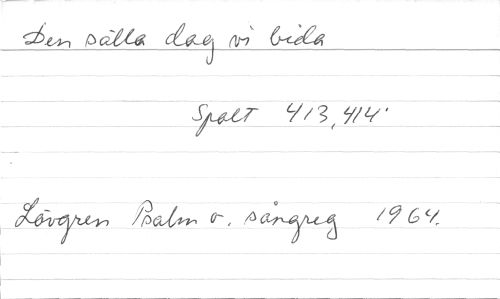 Den sälla dag vi bida
Spalt 413, 414.
Lövgren Psalm o. sångreg 1964.